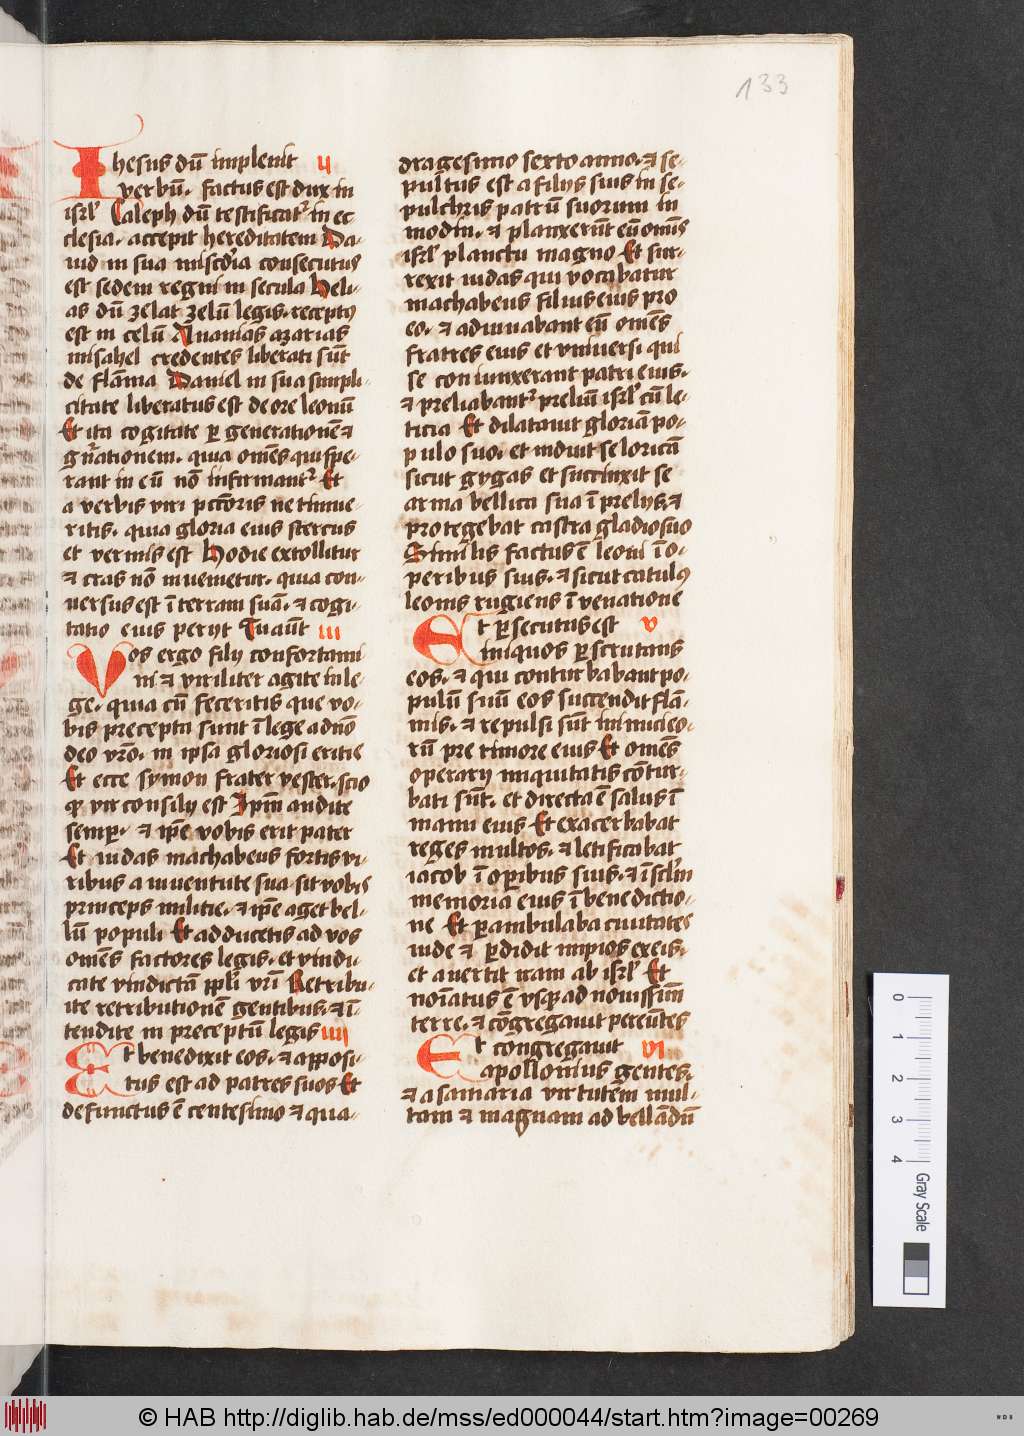 133
Ihesus dū implenit ij
verbū. factus est dux in
isrl' Caleph dū testificat᷑ in ec
clesia. accepit hereditatem Da-
uid in sua miscd'ia consecutus
est sedem regni in secula Heli-
as dū zelat zelū legis. receptꝰ
est in celū Ananias azarias
misahel credentes liberati sūt
de flāma Daniel in sua simpli-
citate liberatus est de ore leonū
Et ita cogitate ꝑ generationē ⁊
gn̄ationem. quia om̄es qui spe-
rant in eū nō infirmant᷑ Et
a verbis viri pctōris ne timue-
ritis. quia gloria eius stercus
et vermis est Hodie extollitur
⁊ cras nō inuenietur. quia con-
uersus est ī terram suā. ⁊ cogi-
tatio eius perijt Quaūt iii
Vos ergo filij confortami
ni ⁊ viriliter agite in le-
ge. quia cū feceritis que vo-
bis precepta sunt ī lege a dn̄o
deo vr̄o. in ipsa gloriosi eritis
Et ecce symon frater vester. scio
ꝙ vir consilij est Ip̄m audite
semꝑ. ⁊ ip̄e vobis erit pater
Et iudas machabeus fortis vi-
ribus a iuuentute sua sit vobis
princeps militie. ⁊ ip̄e aget bel-
lū populi Et adducetis ad vos
om̄es factores legis. et vindi
cate vindictā ppl̄i vr̄i Retribu-
ite retributionē gentibus. ⁊ ī-
tendite in preceptū legis iiii
Et benedixit eos. ⁊ apposi-
tus est ad patres suos Et
defunctus ē centesimo ⁊ qua-
dragesimo sexto anno. ⁊ se-
pultus est a filijs suis in se-
pulchris patrū suorum in
modin. ⁊ planxerūt eū om̄is
isrl' planctu magno Et sur-
rexit iudas qui vocabatur
machabeus filius eius pro
eo. ⁊ adiuuabant eū om̄es
fratres eius et vniuersi qui
se coniunxerant patri eius.
⁊ preliabant᷑ preliū isrl' cū le-
ticia Et dilatauit gloriā po-
pulo suo. et induit se loricā
sicut gygas et succinxit se
arma bellica sua ī prelijs. ⁊
protegebat castra gladio suo
Similis factus ē leoni ī o-
peribus suis. ⁊ sicut catulꝰ
leonis rugiens ī venatione
Et ꝑsecutus est v
iniquos ꝑscrutans
eos. ⁊ qui conturbabant po-
pulū suū eos succendit flā-
mis. ⁊ repulsi sūt inimici eo-
rū pre timore eius Et om̄es
operarij iniquitatis cōtur-
bati sūt. et directa ē salus ī
manu eius Et exacerbabat
reges multos. ⁊ letificabat
iacob ī oꝑibus suis. ⁊ ī scl̄m
memoria eius ī benedictio-
ne Et ꝑambulaba ciuitates
iude ⁊ ꝑdidit impios ex eis.
et auertit iram ab isrl' Et
noīatus ē vsqꝫ ad nouissīm
terre. ⁊ cōgregauit pereūtes
Et congregauit vi
apollonius gentes.
⁊ a samaria virtutem mul-
tam ⁊ magnam ad bellādū
0 1 2 3 4 Gray Scale
© HAB http://diglib.hab.de/mss/ed000044/start.htm?image=00269